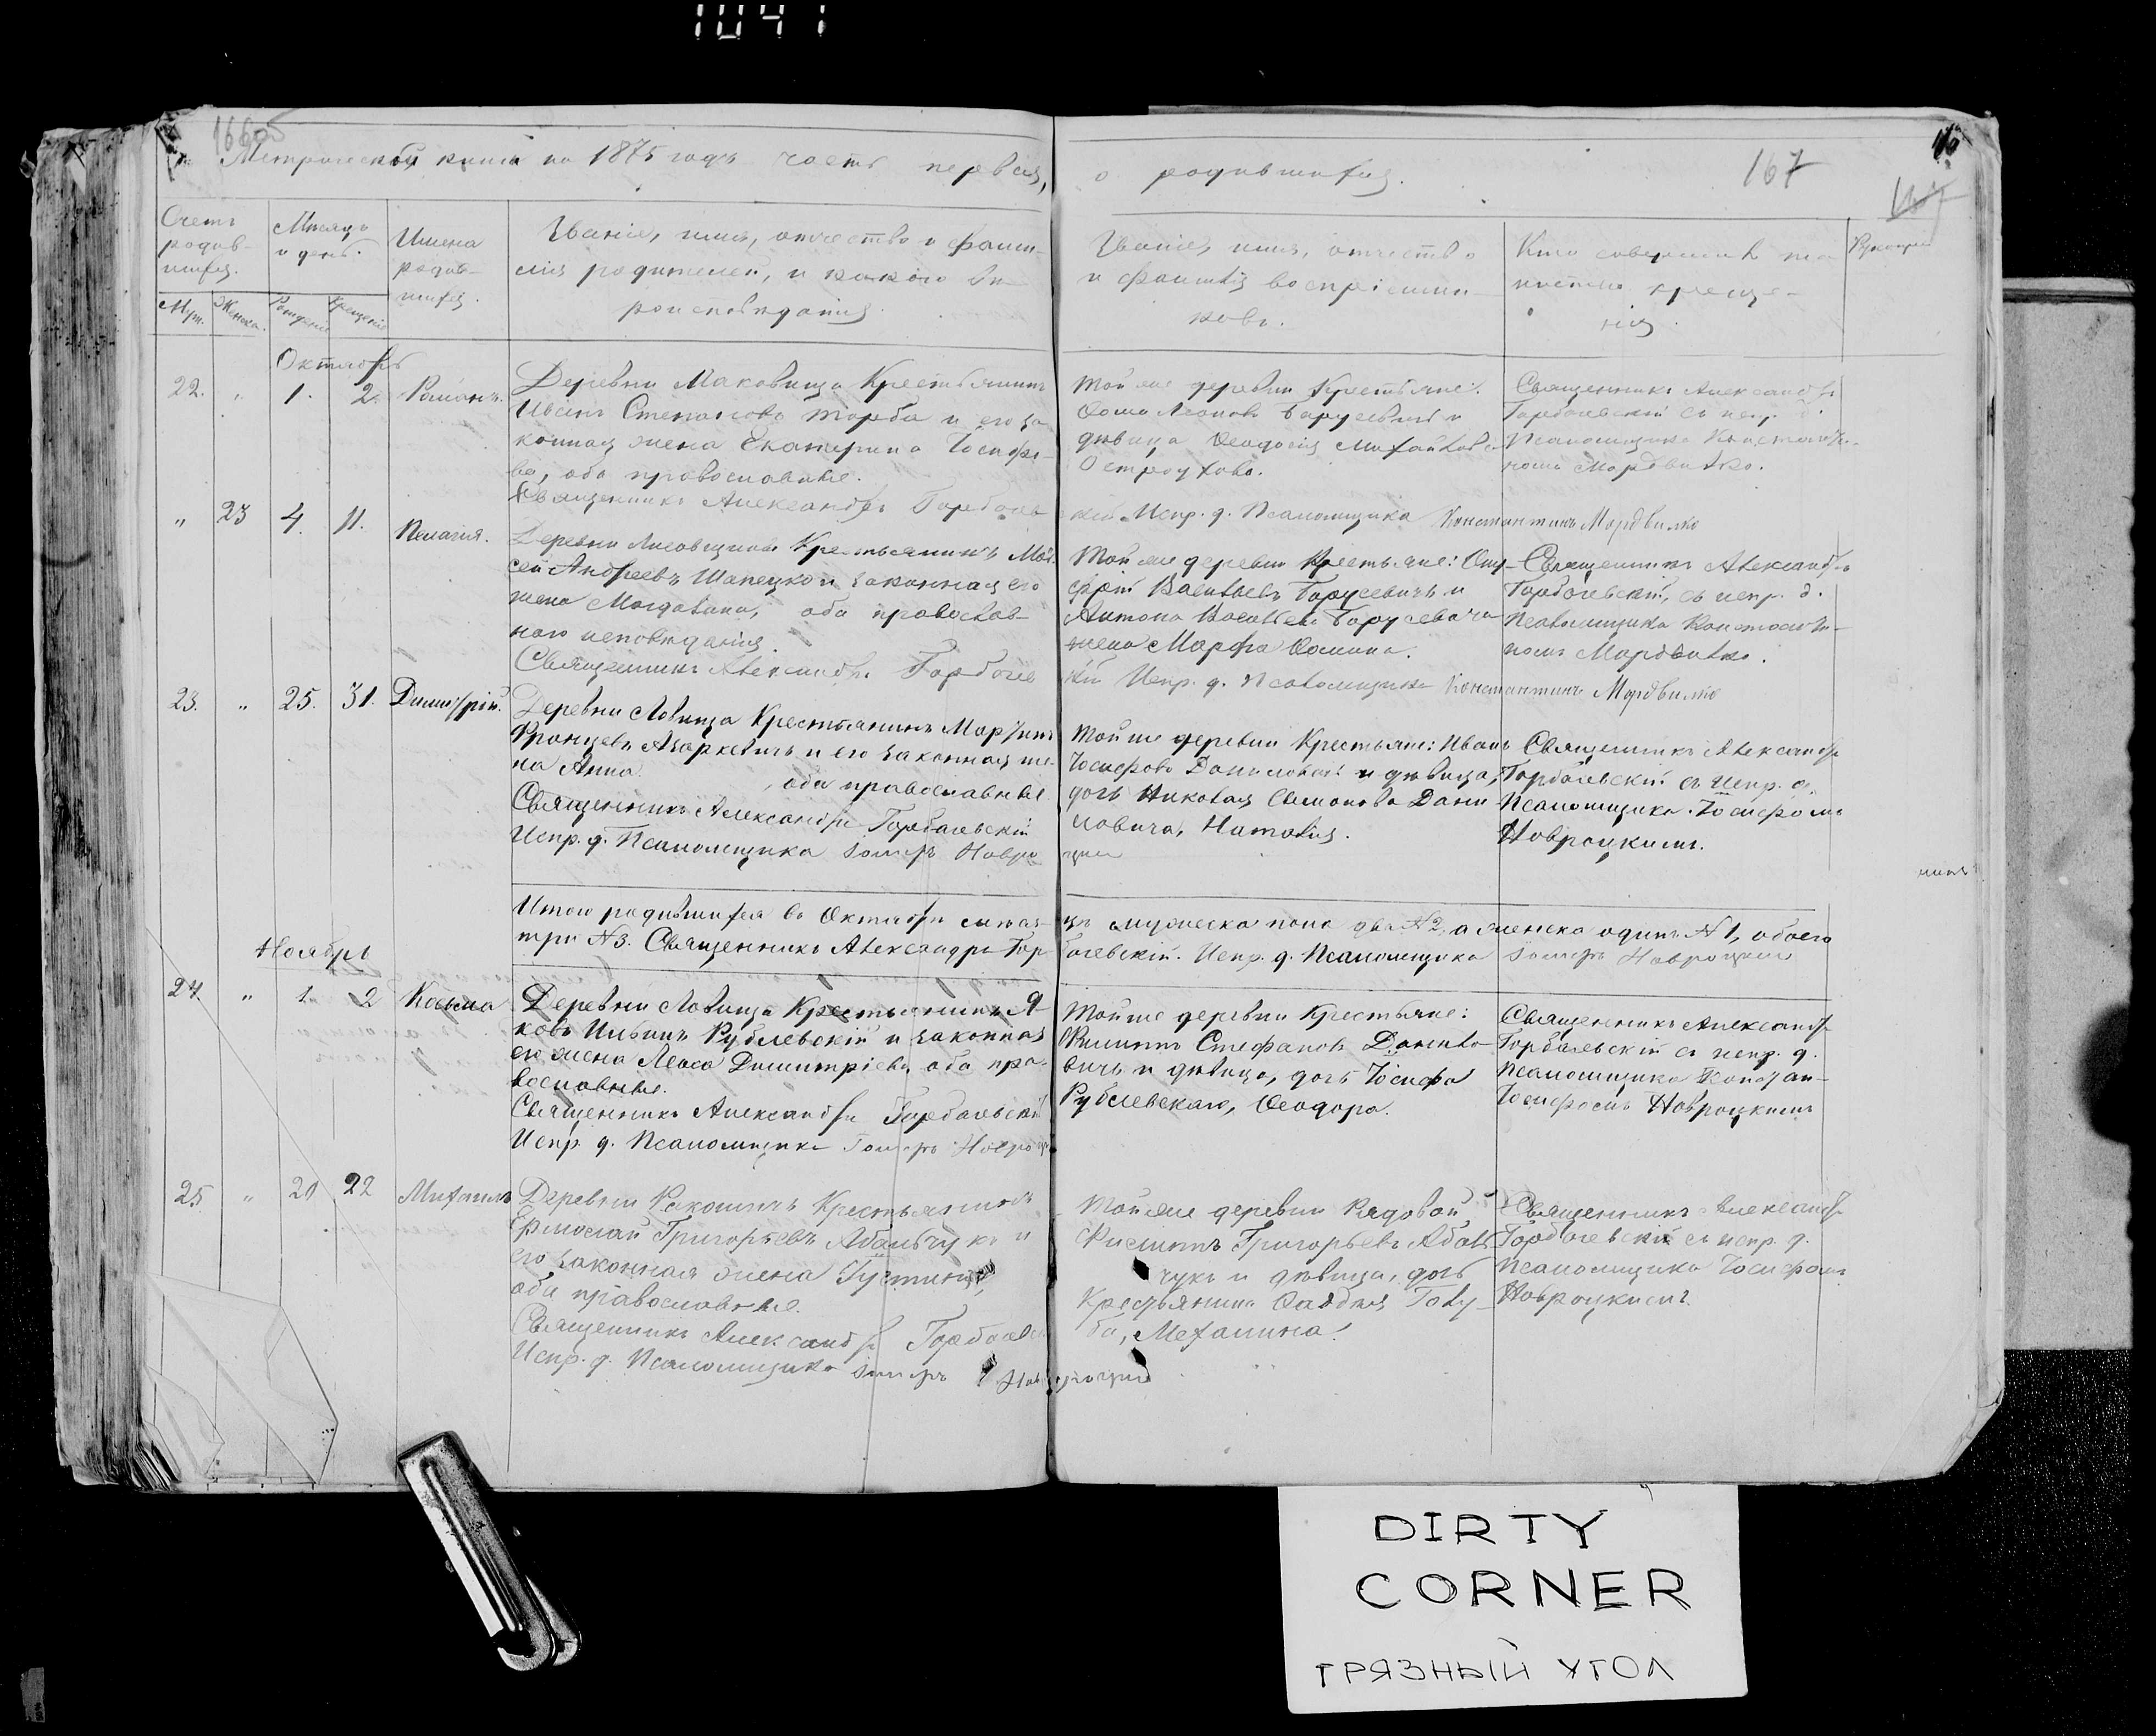 1041
166об
Метрической книги на 1875 годъ часть первая,
о родившихся.
167
Счетъ родив-
шихся.
Муж.
Женск.
Мѣсяцъ
и день.
Рожденія
Крещенія
Имена
родив-
шихся.
Званіе, имя, отчество и фами-
лія родителей, и какого вѣ-
роисповѣданія.
Званіе, имя, отчество
и фамилія воспріемни-
ковъ.
Кто совершилъ та
инство креще-
нія.
Октябрь
22. " 1. 2. Романъ.
Деревни Маковища Крестьянинъ
Иванъ Степановъ Торба и его за
конная жена Екатерина Іосифо-
ва, оба православные.
Священникъ Александръ Горбаче
Той же деревни Крестьяне:
Ѳома Леоновъ Барусевичъ и
дѣвица Ѳеодосія Михайлова
Остроухова.
Священникъ Александръ
Горбачевскій съ испр. д.
Псаломщика Константи-
номъ Мордвилко.
скій Испр. д. Псаломщика Константинъ Мордвилко
" 23 4. 11. Пелагія.
Деревни Крестьянинъ Мой
сей Андреевъ Шапецко и законная его
жена Магдалина, оба православ-
наго исповѣданія.
Священникъ Александръ Горбаче
Той же деревни Крестьяне: Ону-
фрій Васильевъ Барусевичъ и
Антона Васильева Барусевича
жена Марфа Ѳомина.
Священникъ Александръ
Горбачевскій, съ испр. д.
Псаломщика Константи-
номъ Мордвилко.
кій Испр. д. Псаломщика Константинъ Мордвилко
23. " 25. 31. Димитрій.
Деревни Ловища Крестьянинъ Мартинъ
Францевъ Азаркевичъ и его законная же-
на Анна, оба православные
Священникъ Александръ Горбачевскій
Испр. д. Псаломщика Іосифъ Навро
Той же деревни Крестьяне: Иванъ
Іосифовъ Даниловичъ и дѣвица,
дочь Николая Симонова Дани-
ловича, Наталія.
цкій
Священникъ Александръ
Горбачевскій съ Испр. д.
Псаломщика Іосифомъ
Навроцкимъ.
Итого родившихся въ Октябрѣ мѣся
цѣ мужеска пола два №2, а женска одинъ №1, обоего
три №3. Священникъ Александръ Гор-
бачевскій. Испр. д. Псаломщика Іосифъ Навроцкій
Ноябрь
24. " 1. 2 Косьма
Деревни Ловища Крестьянинъ Я-
ковъ Ильинъ Рублевскій и законная
его жена Димитріева, оба пра-
вославные.
Священникъ Александръ Горбачевскій
Испр. д. Псаломщика Іосифъ Навроцкій
Той же деревни Крестьяне:
Филиппъ Стефановъ Данило
вичъ и дѣвица, дочь Іосифа
Рублевскаго, Ѳеодора.
Священникъ Александръ
Горбачевскій съ испр. д.
Псаломщика
Іосифомъ Навроцкимъ
25 " 20 22 Михаилъ
Деревни Крестьянинъ
Ермолай Григорьевъ Абальчукъ и
его законная жена Густина,
оба православные.
Священникъ Александръ Горбачевскій
Испр. д. Псаломщика Іосифъ Навроцкій
Той же деревни Рядовой
Филиппъ Григорьевъ Абаль
чукъ и дѣвица, дочь
Крестьянина Ѳаддея Голу-
ба, Мехалина.
Священникъ Александръ
Горбачевскій съ испр. д.
Псаломщика Іосифомъ
Навроцкимъ.
DIRTY
CORNER
ГРЯЗНЫЙ УГОЛ